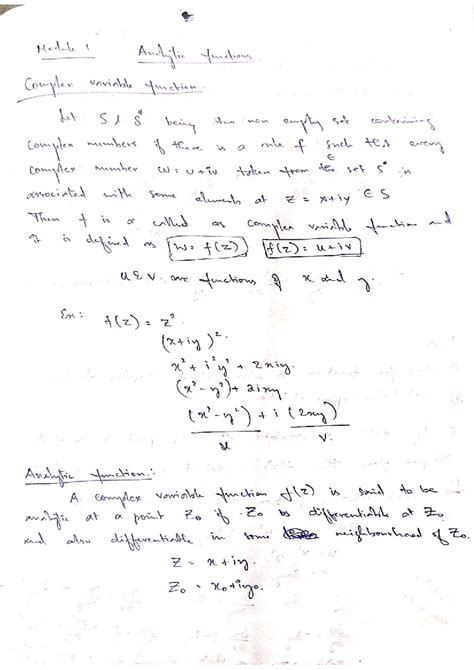 Module 1 Analytic functions
Complex variable function.
Let S & S* being two non empty set containing
Complex numbers if there is a rule f such that every
Complex number w = u+iv taken from the set S* is
associated with some elements at z = x+iy ∈ S
Then f is a called as complex variable function and
It is defined as w = f(z) f(z) = u+iv
u & v are functions of x and y.
Ex: f(z) = z²
(x+iy)²
x² + i²y² + 2xiy.
(x² - y²) + 2ixy.
(x² - y²) + i (2xy)
u v.
Analytic function:
A complex variable function f(z) is said to be
analytic at a point Z₀ if Z₀ is differentiable at Z₀
and also differentiable in some neighbourhood of Z₀.
Z = x + iy.
Z₀ = x₀ + iy₀.